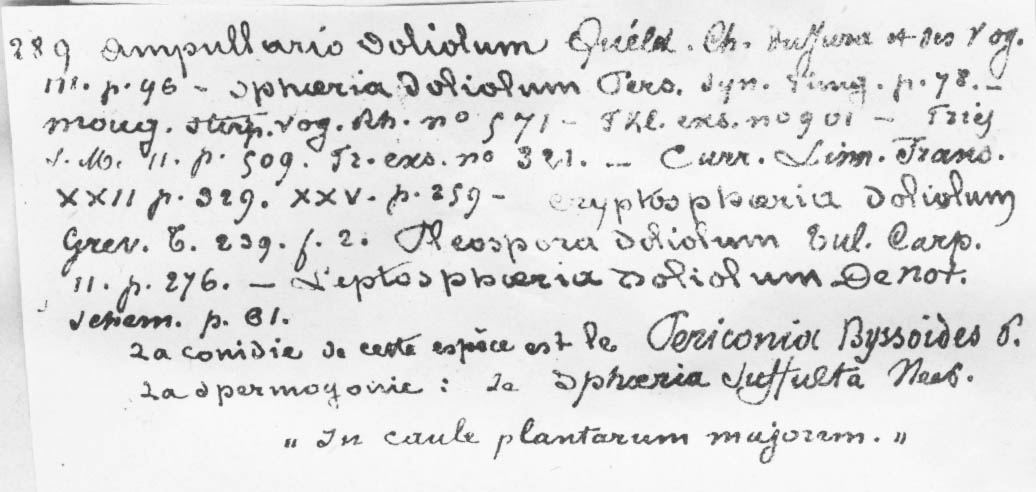 289 Ampullario doliolum Quéld. Ch. du Jura et des Vog.
III. p. 96 - Sphæria doliolum Pers. Syn. Fung. p. 78. -
Moug. Stirp. Vog. Rh. no 571 - Fkl. exs. no 901 - Fries
S. M. II. p. 509. Fr. exs. no 321. - Curr. Linn. Trans.
XXII p. 329. XXV. p. 259 - Cryptosphæria doliolum
Grev. T. 239. f. 2. Pleospora doliolum Tul. Carp.
II. p. 276. - Leptosphæria doliolum De Not.
Schem. p. 61.
La conidie de cette espèce est le Periconia Byssoides P.
La spermogonie : le Sphæria suffulta Nees.
„ In caule plantarum majorum. „